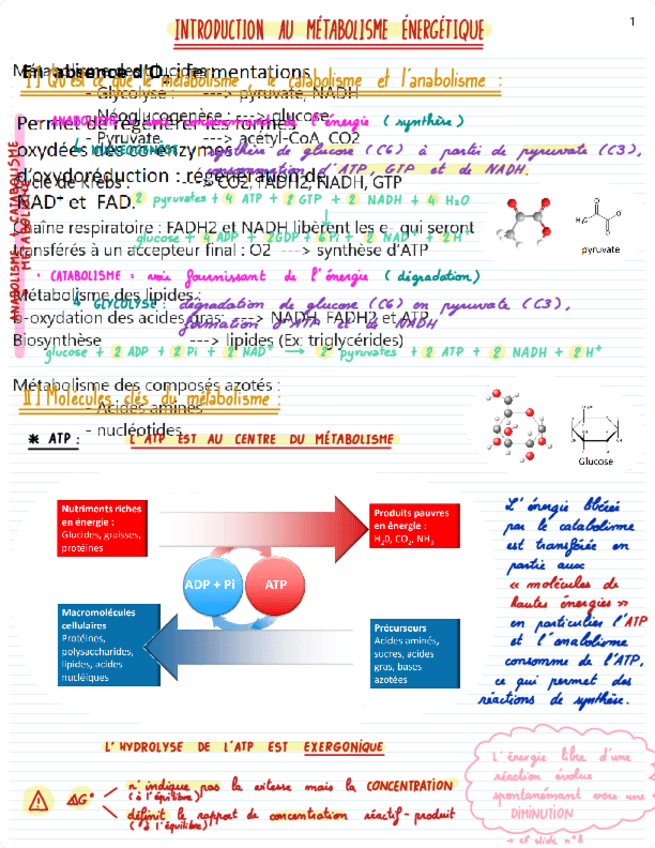 INTRODUCTION AU MÉTABOLISME ÉNERGÉTIQUE
1
Métabolisme des glucides :
En absence d'O : fermentations
I] Qu'est ce que le métabolisme : le catabolisme et l'anabolisme :
- Glycolyse : ---> pyruvate, NADH
- Néoglucogenèse : ---> glucose
ANABOLISME : de l'énergie (synthèse)
Permet de régénérer les formes
- Pyruvate ---> acétyl-CoA, CO2
oxydées des coenzymes
synthèse de glucose (C6) à partir de pyruvate (C3),
consommation d'ATP, GTP et de NADH.
d'oxydoréduction : régénération de
Cycle de Krebs : ---> CO2, FADH2, NADH, GTP
NAD+ et FAD.
2 pyruvates + 4 ATP + 2 GTP + 2 NADH + 4 H2O
Chaîne respiratoire : FADH2 et NADH libèrent les e- qui seront
glucose + 4 ADP + 2GDP + 6 Pi + 2 NAD+ + 2H+
transférés à un accepteur final : O2 ---> synthèse d'ATP
ANABOLISME CATABOLISME
MÉTABOLISME
H3C
O
O
O-
pyruvate
• CATABOLISME : voie fournissant de l'énergie (dégradation)
Métabolisme des lipides :
↳ GLYCOLYSE : dégradation de glucose (C6) en pyruvate (C3),
formation d'ATP et de NADH
b-oxydation des acides gras: ---> NADH, FADH2 et ATP
Biosynthèse ---> lipides (Ex: triglycérides)
glucose + 2 ADP + 2 Pi + 2 NAD+ → 2 pyruvates + 2 ATP + 2 NADH + 2 H+
Métabolisme des composés azotés :
II] Molécules clés du métabolisme :
- Acides aminés
- nucléotides
* ATP : L'ATP EST AU CENTRE DU MÉTABOLISME
Glucose
Nutriments riches
en énergie :
Glucides, graisses,
protéines
Produits pauvres
en énergie :
H2O, CO2, NH3
ADP + Pi
ATP
Macromolécules
cellulaires
Protéines,
polysaccharides,
lipides, acides
nucléiques
Précurseurs
Acides aminés,
sucres, acides
gras, bases
azotées
L'énergie libérée
par le catabolisme
est transférée en
partie aux
« molécules de
hautes énergies »
en particulier l'ATP
et l'anabolisme
consomme de l'ATP,
ce qui permet des
réactions de synthèse.
L'HYDROLYSE DE L'ATP EST EXERGONIQUE
⚠ ΔG°
n'indique pas la vitesse mais la CONCENTRATION
(à l'équilibre)
définit le rapport de concentration réactif-produit
(à l'équilibre)
L'énergie libre d'une
réaction évolue
spontanément vers une
DIMINUTION
→ cf slide n°8